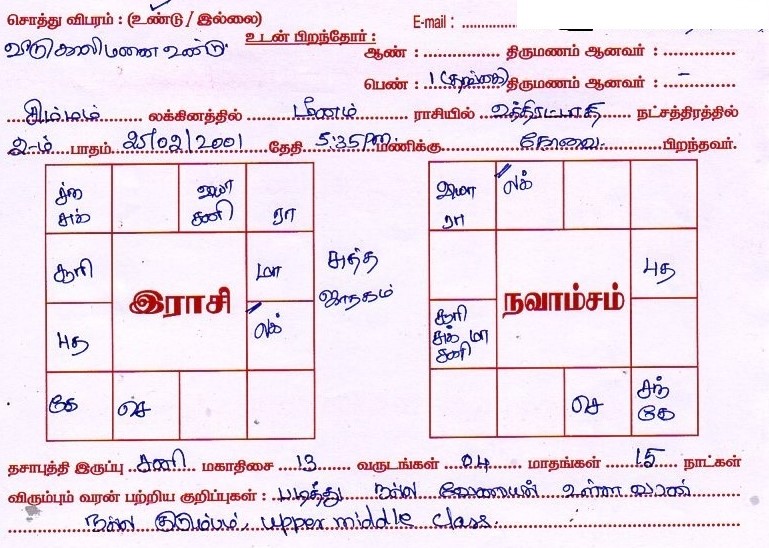 சொத்து விபரம் : (உண்டு / இல்லை) E-mail :
உடன் பிறந்தோர் :
வீடு காலிமனை உண்டு. ஆண் : திருமணம் ஆனவர் :
பெண் : 1 (தங்கை) திருமணம் ஆனவர் : –
சிம்மம் லக்கினத்தில் மீனம் ராசியில் உத்திரட்டாதி நட்சத்திரத்தில்
2-ம் பாதம் 25/02/2001 தேதி 5.35 PM மணிக்கு கோவை பிறந்தவர்.
சந் சுக் வியா சனி ரா
சூரி மா சுத்த ஜாதகம்
இராசி
புத லக்
கே செ
வியா ரா லக்
புத
நவாம்சம்
சூரி சுக் மா சனி
செ சந் கே
தசாபுத்தி இருப்பு சனி மகாதிசை 13 வருடங்கள் 04 மாதங்கள் 15 நாட்கள்
விரும்பும் வரன் பற்றிய குறிப்புகள் : படித்து நல்ல வேலையில் உள்ள வரன்
நல்ல குடும்பம், upper middle class.